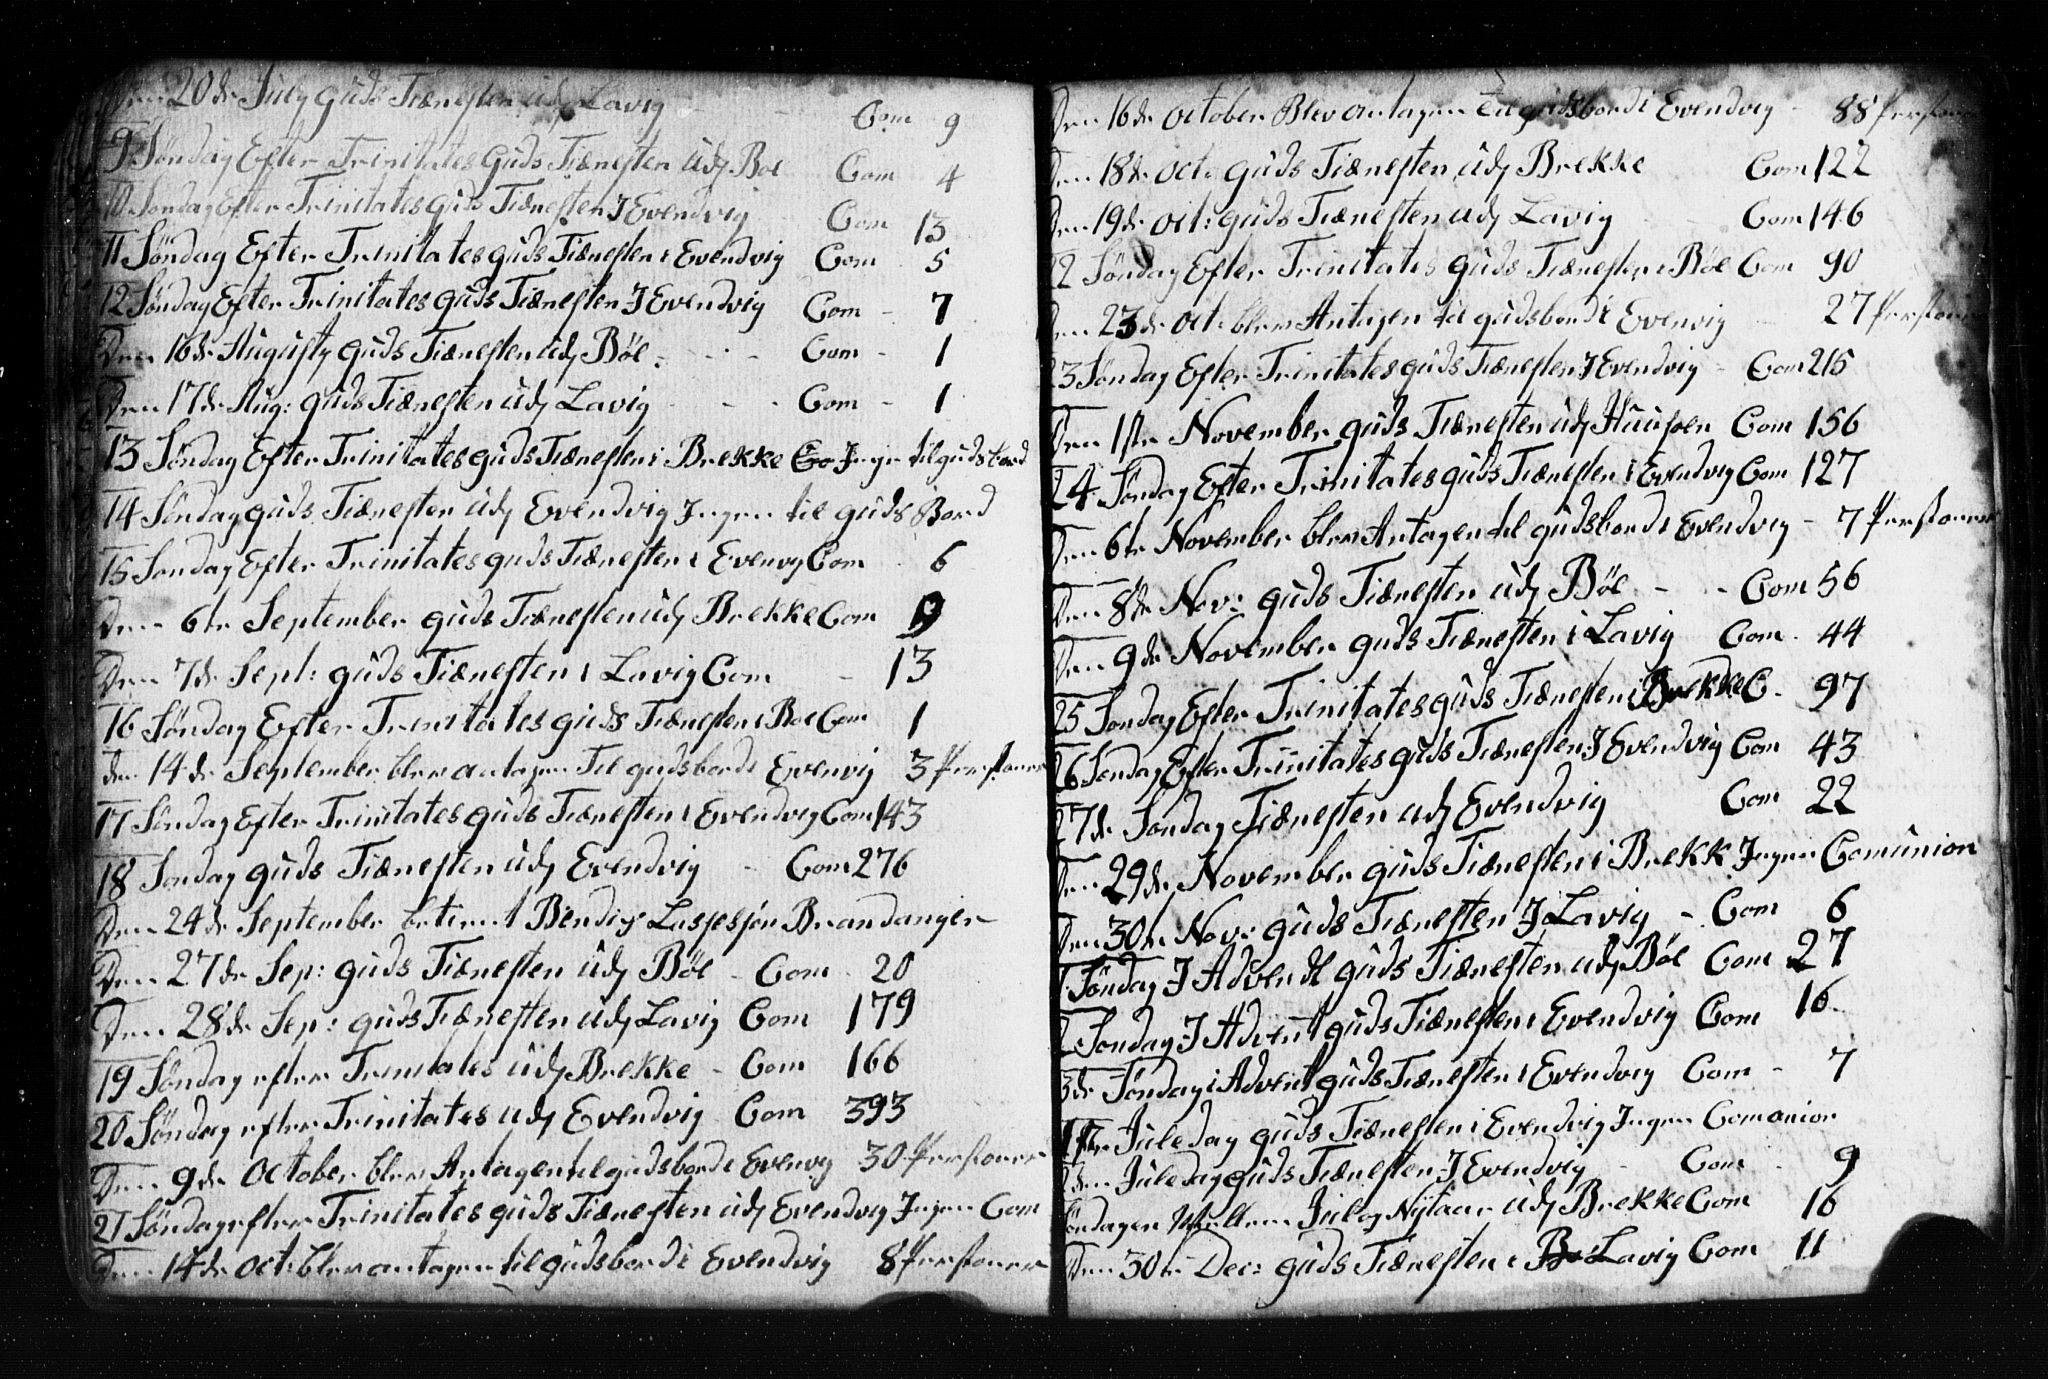 Den 20de July guds Tiænesten udj Lavig - - Com 9
9 Søndag Efter Trinitates Guds Tiænesten Udj Boe Com 4
10 Søndag Efter Trinitates guds Tiænesten J Evendvig Com 13
11 Søndag Efter Trinitates guds Tiænesten i Evendvig Com 5
12 Søndag Efter Trinitates guds Tiænesten J Evendvig Com - 7
Den 16de Augusty guds Tiænesten udj Böe - - - Com - 1
Den 17de Aug: guds Tiænesten udj Lavig - - - Com - 1
13 Søndag Efter Trinitates guds Tiænesten i Brekke Jngen til guds bord
14 Søndag guds Tiænesten udj Evendvig Jngen til guds Bord
15 Søndag Efter Trinitates guds Tiænesten i Evenvg Com 6
Den 6te September guds Tiænesten udj Brekke Com 9
Den 7de Sept: guds Tiænesten i Lavig Com - 13
16 Søndag Efter Trinitates guds Tiænesten i Boe Com 1
den 14de September blev antagen Til gudsbord i Evenvig 3 Personer
17 Søndag Efter Trinitates guds Tiænesten i Evendvig Com 143
18 Søndag guds Tiænesten udj Evendvig - Com 276
Den 24de September Bendix Brandanger
Den 27de Sep: guds Tiænesten udj Böe - Com 20
Den 28de Sep: guds Tiænesten udj Lavig Com 179
19 Søndag efter Trinitates udj Brekke - Com 166
20 Søndag efter Trinitates udj Evendvig Com 393
Den 9de October blev Antagen til gudsbord i Evenvig 30 Personer
21 Søndag efter Trinitates guds Tiænesten udj Evendvig Jngen Com
Den 14de Oct: blev antagen til gudsbord i Evendvig 8 Personer
Den 16de October Blev Antagen til gudsbord i Evendvig - 88 Personer
Den 18de Oct: guds Tiænesten udj Brekke Com 122
Den 19de Oct: guds Tiænesten udj Lavig - - Com 146
22 Søndag Efter Trinitates guds Tiænesten i Böe Com 90
Den 23de Oct: blev Antagen til gudsbord i Evenvig 27 Personer
23 Søndag Efter Trinitates guds Tiænesten J Evendvig - Com 215
Den 1ste November guds Tiænesten udj Huusøen Com 156
24 Søndag Efter Trinitates guds Tiænesten i Evendvig Com 127
Den 6te November blev Antagen til gudsbord i Evendvig - 7 Personer
Den 8de Nov: guds Tiænesten udj Böe - - Com 56
Den 9de November guds Tiænesten i Lavig Com 44
25 Søndag Efter Trinitates guds Tiænesten i Brekke C. 97
26 Søndag Efter Trinitates guds Tiænesten J Evendvig Com 43
27de Søndag Tiænesten udj Evendvig Com 22
Den 29de November guds Tiænesten i Brekk Jngen Comunion
Den 30te Nov: guds Tiænesten J Lavig - Com 6
1 Søndag J Advendt guds Tiænesten udj Böe Com 27
2 Søndag J Advent guds Tiænesten i Evendvig Com 16
3de Søndag i Advent guds Tiænesten i Evendvig Com - 7
1ste Juledag guds Tiænesten i Evendvig Jngen Comanion
2den Juledag guds Tiænesten J Evendvig - Com - 9
Søndagen Mellem Jul og Nytaar udj Brekke Com 16
Den 30te Dec: guds Tiænesten i Lavig Com 11